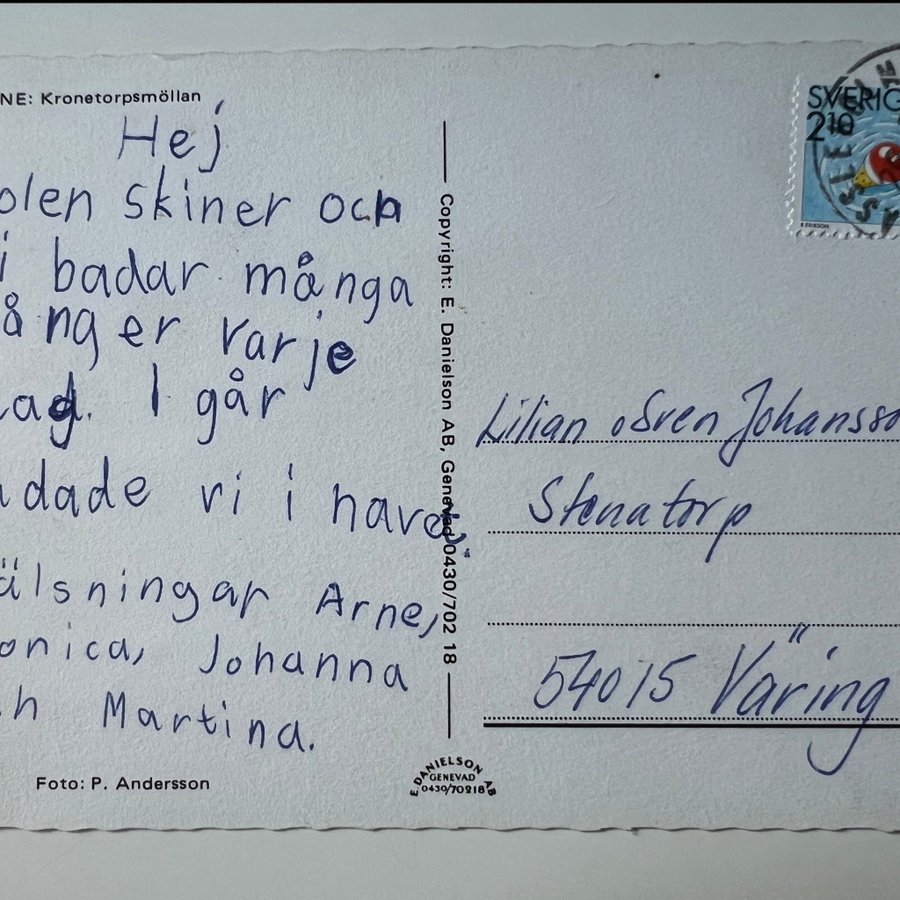 NE: Kronetorpsmöllan
Hej
olen skiner och
i badar många
ånger varje
ag. I går
adade vi i havet.
älsningar Arne,
onica, Johanna
h Martina.
Foto: P. Andersson
Copyright: E. Danielson AB, Genevad 0430/702 18
E. DANIELSON AB
GENEVAD
0430/70218
SVERIG
210
Lilian o Sven Johansso
Stenatorp
54015 Väring